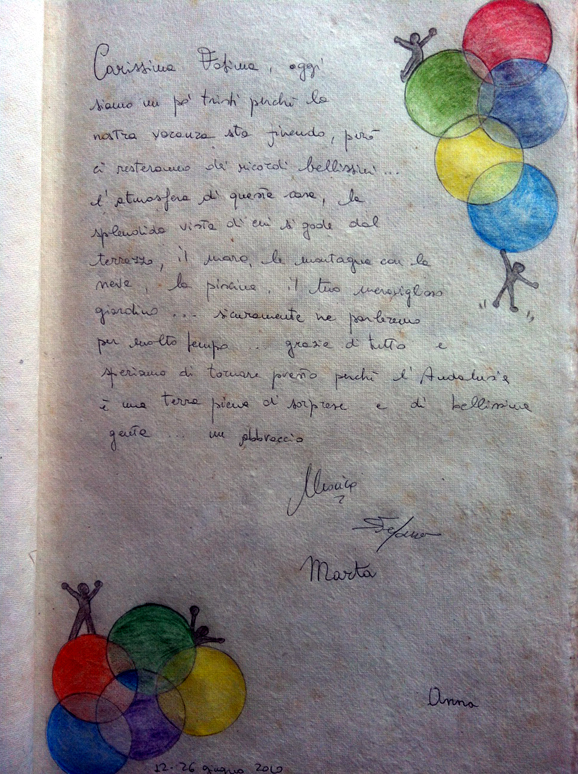 Carissima Fatima, oggi
siamo un po' tristi perchè la
nostra vacanza sta finendo, però
ci resteranno dei ricordi bellissimi...
l'atmosfera di questa casa, la
splendida vista di cui si gode dal
terrazzo, il mare, le montagne con la
neve, la piscina, il tuo meraviglioso
giardino... sicuramente ne parleremo
per molto tempo... grazie di tutto e
speriamo di tornare presto perchè l'Andalusia
è una terra piena di sorprese e di bellissima
gente... un abbraccio
Monica
Stefano
Marta
Anna
12-26 giugno 2010